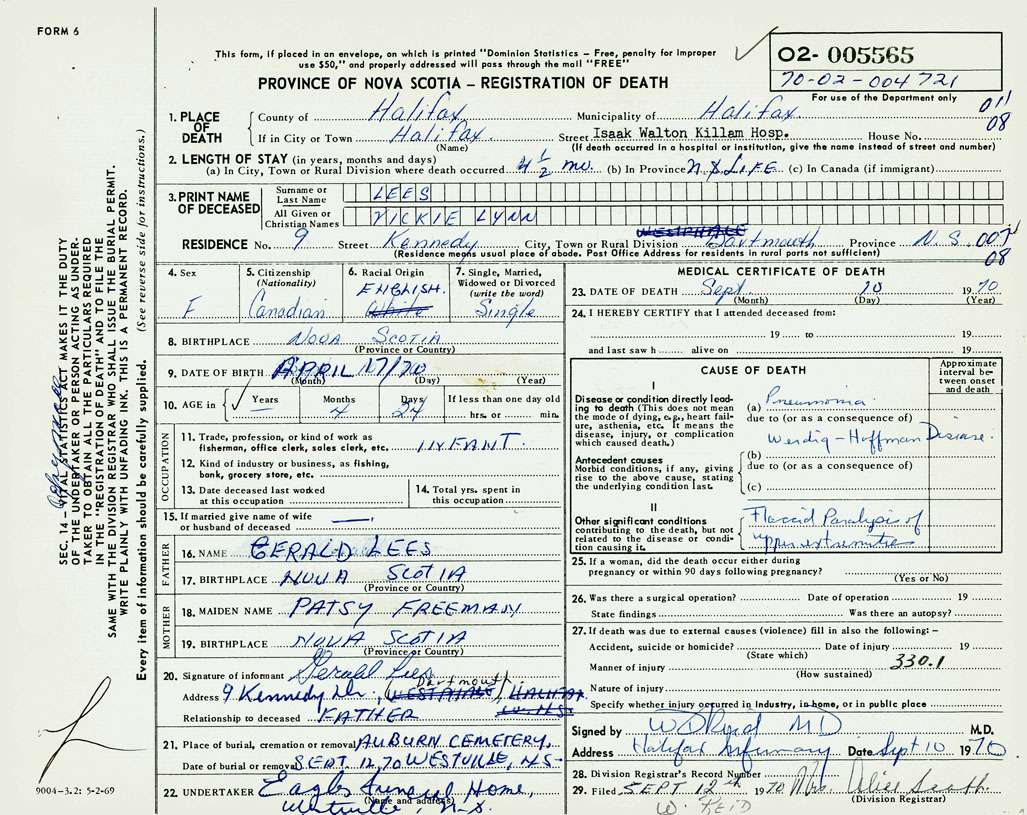 FORM 6
This form, if placed in an envelope, on which is printed "Dominion Statistics – Free, penalty for improper
use $50," and properly addressed will pass through the mail "FREE"
O2- 005565
70-02-004721
For use of the Department only
PROVINCE OF NOVA SCOTIA – REGISTRATION OF DEATH
011
08
1. PLACE OF DEATH
County of Halifax Municipality of Halifax.
If in City or Town Halifax. Street Isaak Walton Killam Hosp. House No.
(Name) (If death occurred in a hospital or institution, give the name instead of street and number)
2. LENGTH OF STAY (in years, months and days)
(a) In City, Town or Rural Division where death occurred 4 1/2 mo. (b) In Province N.S. LIFE (c) In Canada (if immigrant)
3. PRINT NAME OF DECEASED
Surname or Last Name LEES
All Given or Christian Names VICKIE LYNN
WESTPHALE
RESIDENCE No. 9 Street Kennedy City, Town or Rural Division Dartmouth Province N.S. 007
(Residence means usual place of abode. Post Office Address for residents in rural parts not sufficient) 08
4. Sex
F
5. Citizenship
(Nationality)
Canadian
6. Racial Origin
ENGLISH.
White
7. Single, Married,
Widowed or Divorced
(write the word)
Single
8. BIRTHPLACE NOVA SCOTIA
(Province or Country)
9. DATE OF BIRTH APRIL 17/70
(Month) (Day) (Year)
10. AGE in Years Months Days If less than one day old
4 24 hrs. or min.
OCCUPATION
11. Trade, profession, or kind of work as
fisherman, office clerk, sales clerk, etc. INFANT.
12. Kind of industry or business, as fishing,
bank, grocery store, etc.
13. Date deceased last worked
at this occupation
14. Total yrs. spent in
this occupation
15. If married give name of wife
or husband of deceased —
FATHER
16. NAME GERALD LEES
17. BIRTHPLACE NOVA SCOTIA
(Province or Country)
MOTHER
18. MAIDEN NAME PATSY FREEMAN
19. BIRTHPLACE NOVA SCOTIA
(Province or Country)
20. Signature of informant Gerald Lees
Dartmouth
Address 9 Kennedy Dr., WESTPHALE, HALIFAX
Co. N.S.
Relationship to deceased FATHER
21. Place of burial, cremation or removal AUBURN CEMETERY,
Date of burial or removal SEPT. 12, 70 WESTVILLE, N.S-
22. UNDERTAKER Eagles Funeral Home,
(Name and address)
Westville, N.S.
MEDICAL CERTIFICATE OF DEATH
23. DATE OF DEATH Sept 10 1970
(Month) (Day) (Year)
24. I HEREBY CERTIFY that I attended deceased from:
19 to 19
and last saw h alive on 19
CAUSE OF DEATH
Approximate interval between onset and death
I
Disease or condition directly lead-
ing to death (This does not mean
the mode of dying, e.g., heart fail-
ure, asthenia, etc. It means the
disease, injury, or complication
which caused death.)
(a) Pneumonia
due to (or as a consequence of)
Werdig-Hoffman Disease.
Antecedent causes
Morbid conditions, if any, giving
rise to the above cause, stating
the underlying condition last.
(b)
due to (or as a consequence of)
(c)
II
Other significant conditions
contributing to the death, but not
related to the disease or condi-
tion causing it.
Flaccid Paralysis of
upper extremities
25. If a woman, did the death occur either during
pregnancy or within 90 days following pregnancy?
(Yes or No)
26. Was there a surgical operation? Date of operation 19
State findings Was there an autopsy?
27. If death was due to external causes (violence) fill in also the following:–
Accident, suicide or homicide? Date of injury 19
(State which)
Manner of injury 330.1
(How sustained)
Nature of injury
Specify whether injury occurred in industry, in home, or in public place
Signed by W S Reid MD M.D.
Address Halifax Infirmary Date Sept 10 1970
28. Division Registrar's Record Number
29. Filed SEPT 12th 1970 Mrs.
(Division Registrar)
W. REID
SEC. 14 – VITAL STATISTICS ACT MAKES IT THE DUTY
OF THE UNDERTAKER OR PERSON ACTING AS UNDER-
TAKER TO OBTAIN ALL THE PARTICULARS REQUIRED
IN THE "REGISTRATION OF DEATH" AND TO FILE THE
SAME WITH THE DIVISION REGISTRAR WHO SHALL ISSUE THE BURIAL PERMIT.
WRITE PLAINLY WITH UNFADING INK. THIS IS A PERMANENT RECORD.
Every item of information should be carefully supplied. (See reverse side for instructions.)
9004-3.2: 5-2-69